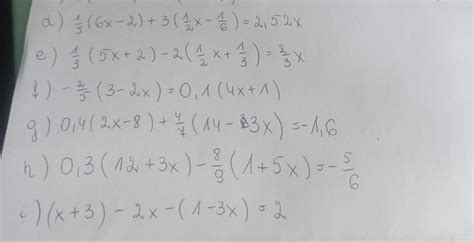 d) 1/3 (6x-2) + 3(1/2 x - 1/6) = 2,52x
e) 1/3 (5x+2) - 2(1/2 x + 1/3) = 2/3 x
f) - 2/5 (3-2x) = 0,1(4x+1)
g) 0,4(2x-8) + 4/7 (14-3x) = -1,6
h) 0,3(12+3x) - 8/9 (1+5x) = - 5/6
i) (x+3) - 2x - (1-3x) = 2